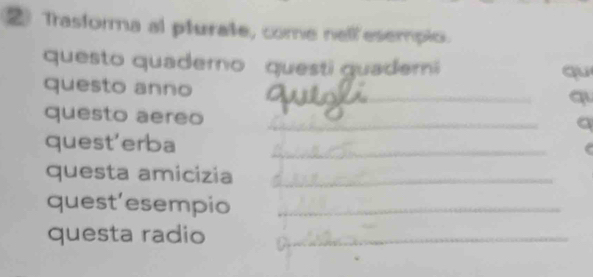 2 Trasforma al plurale, come nell'esempio.
questo quaderno questi quaderni qu
questo anno quegli qu
questo aereo q
quest'erba
questa amicizia
quest'esempio
questa radio